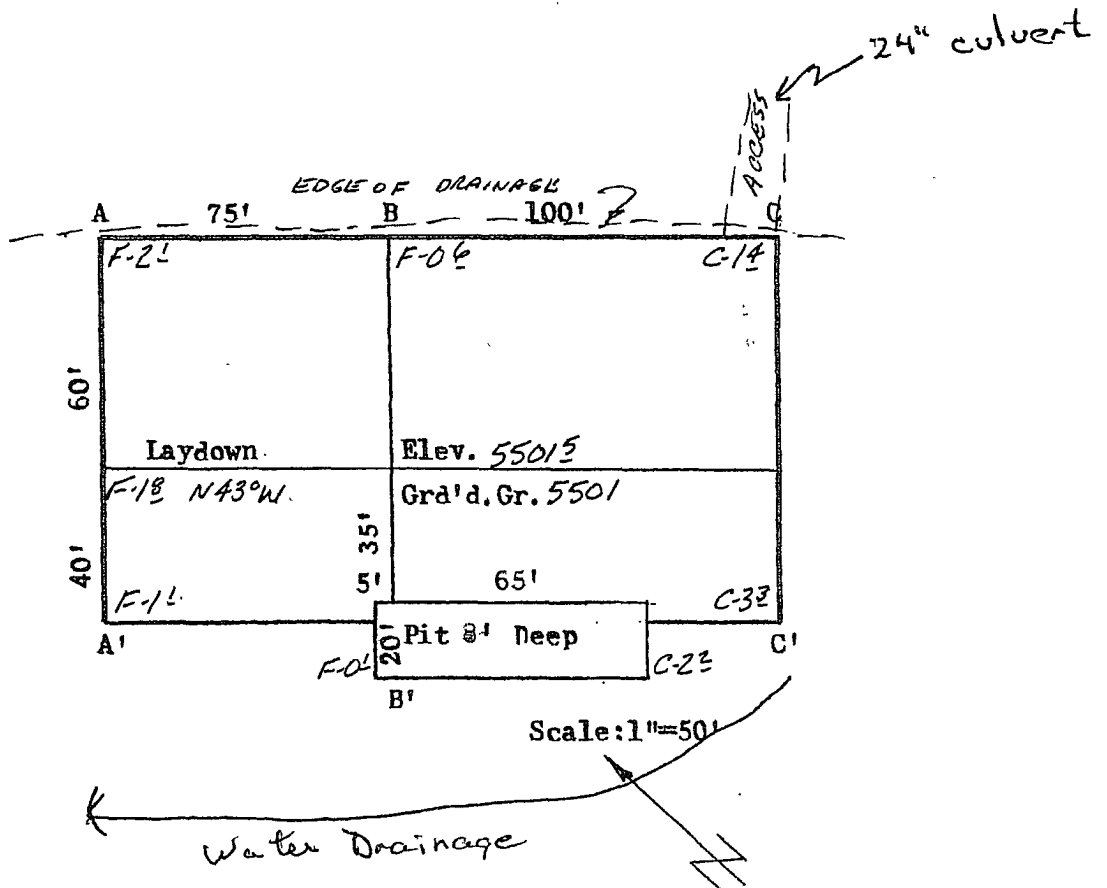 24" culvert
ACCESS
EDGE OF DRAINAGE
A 75' B 100' ? C
F-2 1
F-0 6
C-1 4
60'
Laydown
Elev. 5501 5
F-1 8 N43°W.
Grd'd.Gr. 5501
40'
35'
5' 65'
F-1 1
C-3 3
A'
20'
Pit 8' Deep
C'
F-0 1
C-2 2
B'
Scale:1"=50'
Water Drainage
N